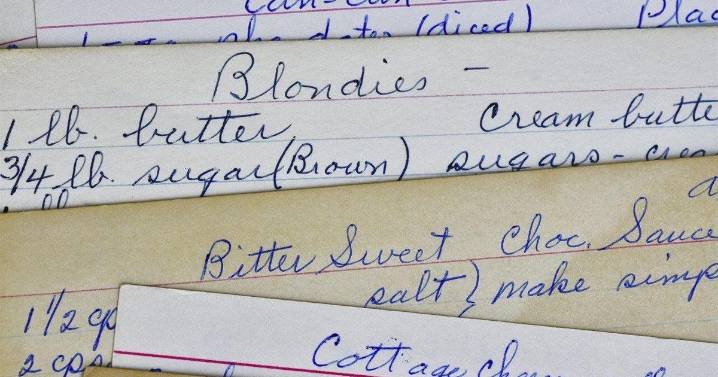 dates (diced)
Blondies -
1 lb. butter Cream butte
3/4 lb. sugar (Brown) sugars -
Bitter Sweet Choc. Sauce
salt } make simp
1 1/2 cp
2 cps
Cottage